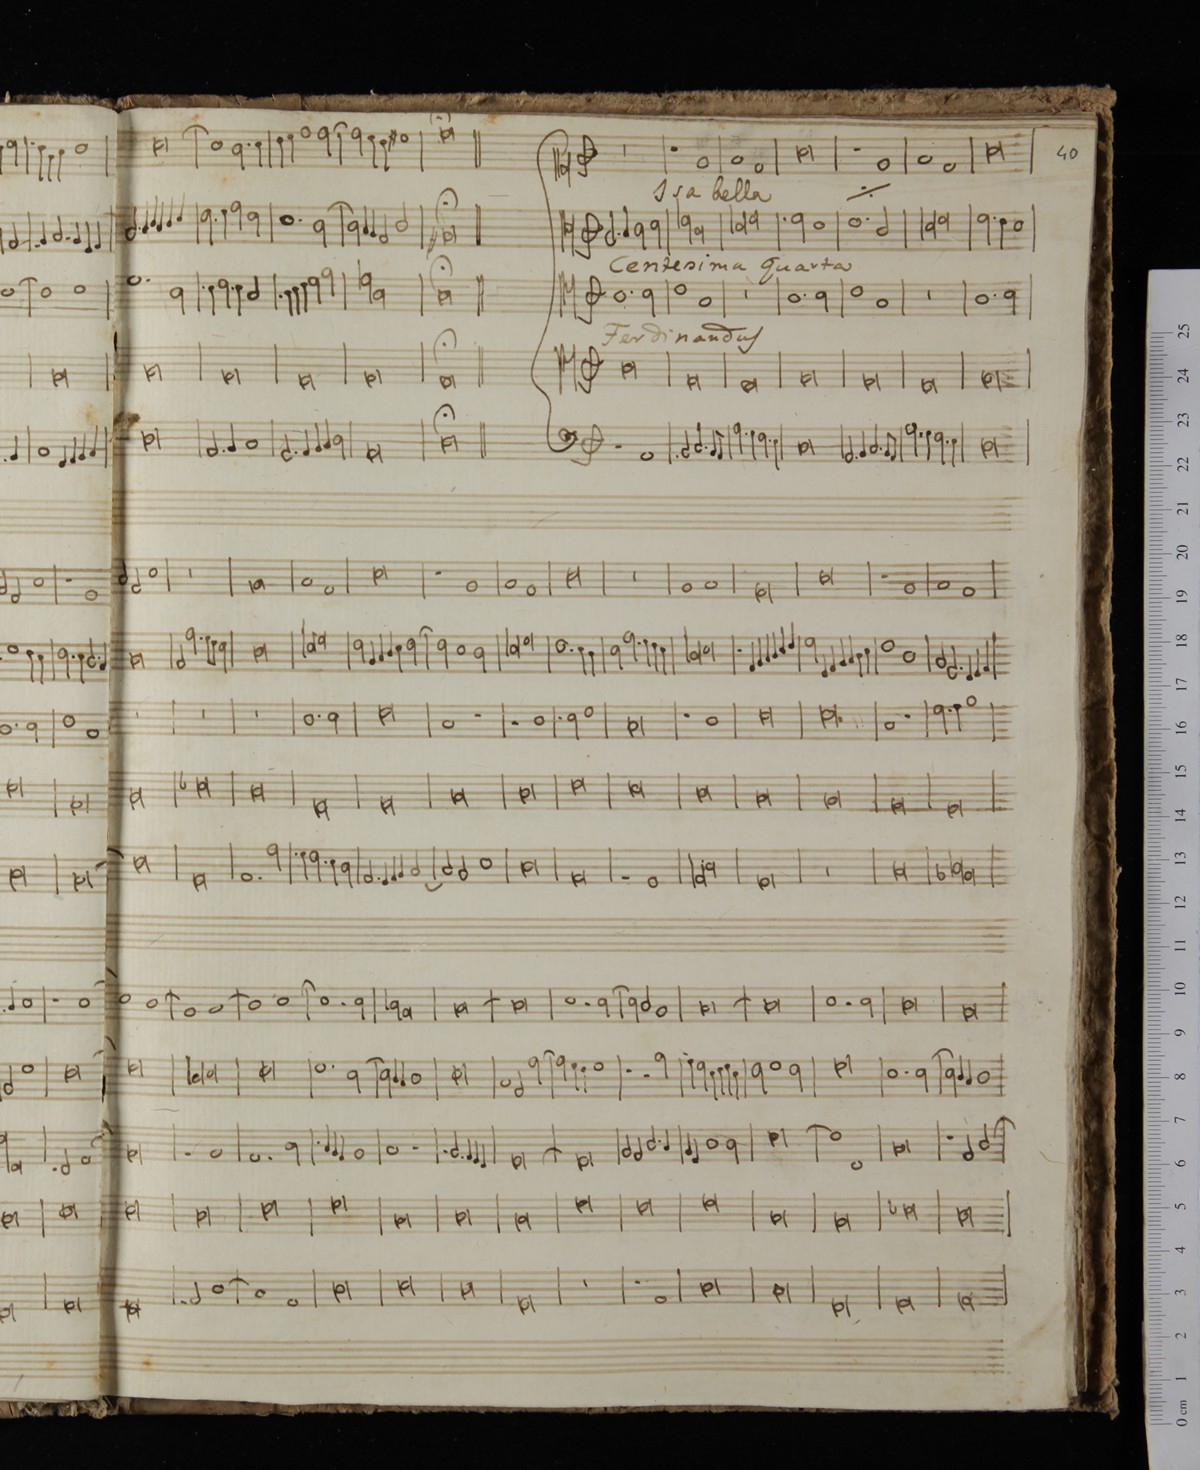 40
Isabella
Centesima quarta
Ferdinandus
25
24
23
22
21
20
19
18
17
16
15
14
13
12
11
10
9
8
7
6
5
4
3
2
1
0 cm